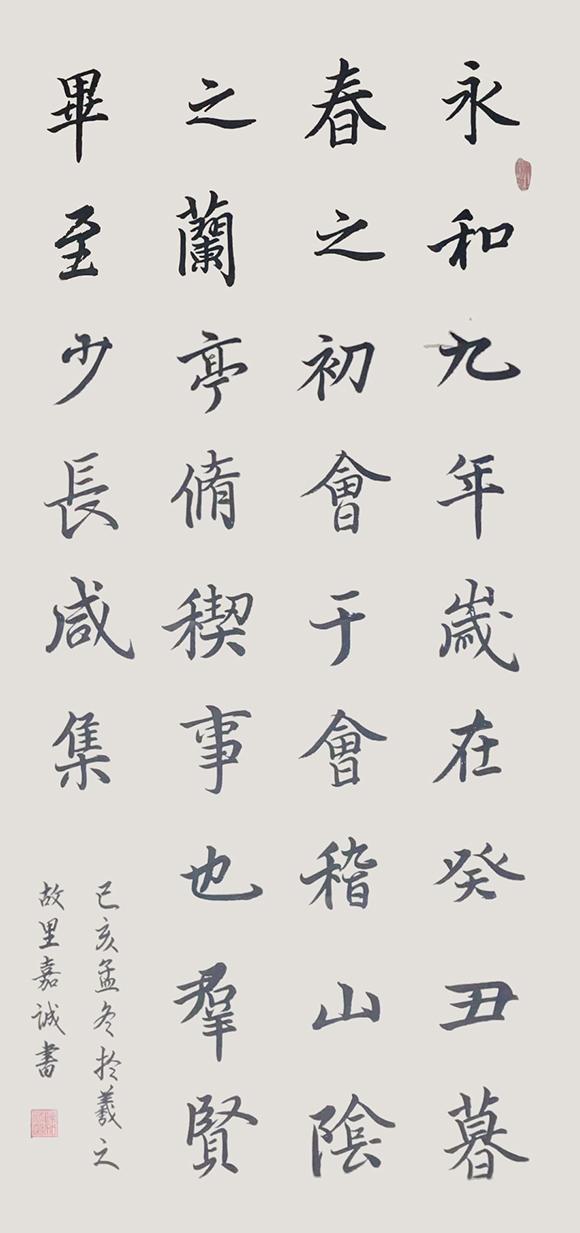 永和九年歲在癸丑暮
春之初會于會稽山陰
之蘭亭脩稧事也羣賢
畢至少長咸集
己亥孟冬於羲之
故里嘉誠書